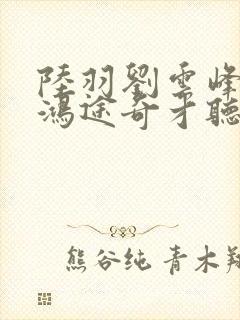 陸羽劉雲峰
鴻途奇才聽
熊谷纯 青木翔